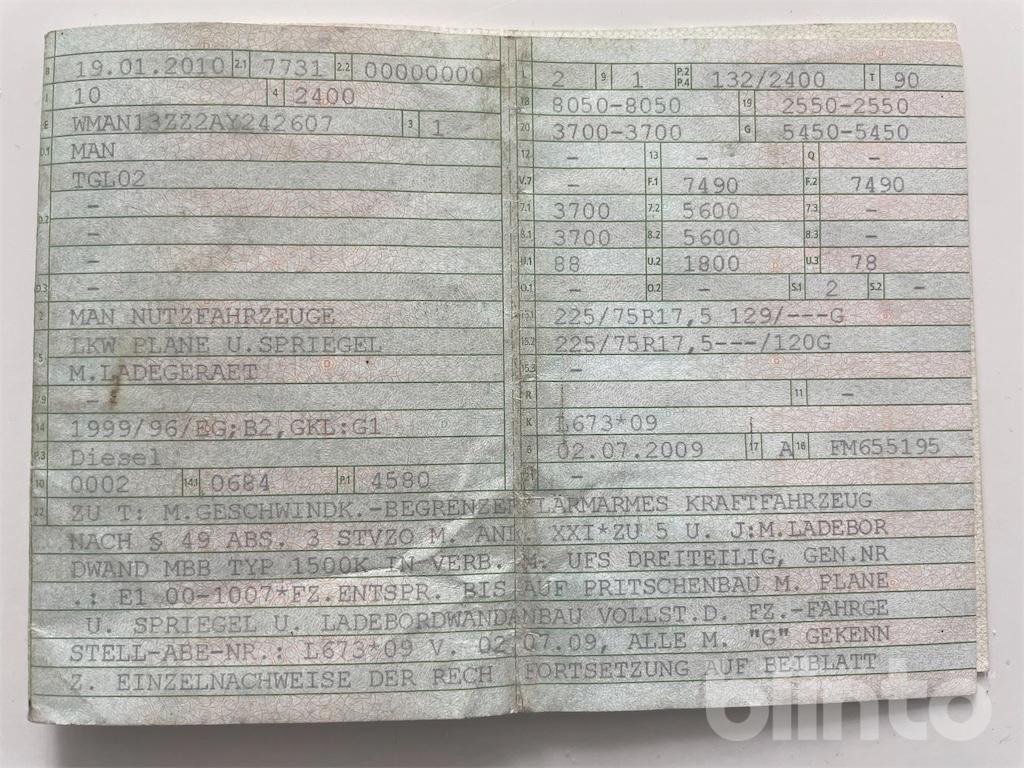 B 19.01.2010 2.1 7731 2.2 00000000
J 10 4 2400
E WMAN13ZZ2AY242607 3 1
D.1 MAN
TGL02
–
D.2 –
–
D.3 –
2 MAN NUTZFAHRZEUGE
LKW PLANE U.SPRIEGEL
5 M.LADEGERAET
V.9 –
14 1999/96/EG;B2,GKL:G1
P.3 Diesel
10 0002 14.1 0684 P.1 4580
L 2 9 1 P.2 P.4 132/2400 T 90
18 8050-8050 19 2550-2550
20 3700-3700 G 5450-5450
12 – 13 – Q –
V.7 – F.1 7490 F.2 7490
7.1 3700 7.2 5600 7.3 –
8.1 3700 8.2 5600 8.3 –
U.1 88 U.2 1800 U.3 78
O.1 – O.2 – S.1 2 S.2 –
15.1 225/75R17,5 129/---G
15.2 225/75R17,5---/120G
15.3 –
R 11 –
K L673*09
6 02.07.2009 17 A 16 FM655195
21 –
22 ZU T: M.GESCHWINDK.-BEGRENZER LÄRMARMES KRAFTFAHRZEUG
NACH § 49 ABS. 3 STVZO M. ANL. XXI*ZU 5 U. J:M.LADEBOR
DWAND MBB TYP 1500K IN VERB. M. UFS DREITEILIG, GEN.NR
.: E1 00-1007*FZ.ENTSPR. BIS AUF PRITSCHENBAU M. PLANE
U. SPRIEGEL U. LADEBORDWANDANBAU VOLLST.D. FZ.-FAHRGE
STELL-ABE-NR.: L673*09 V. 02.07.09, ALLE M. "G" GEKENN
Z. EINZELNACHWEISE DER RECH FORTSETZUNG AUF BEIBLATT
blinto